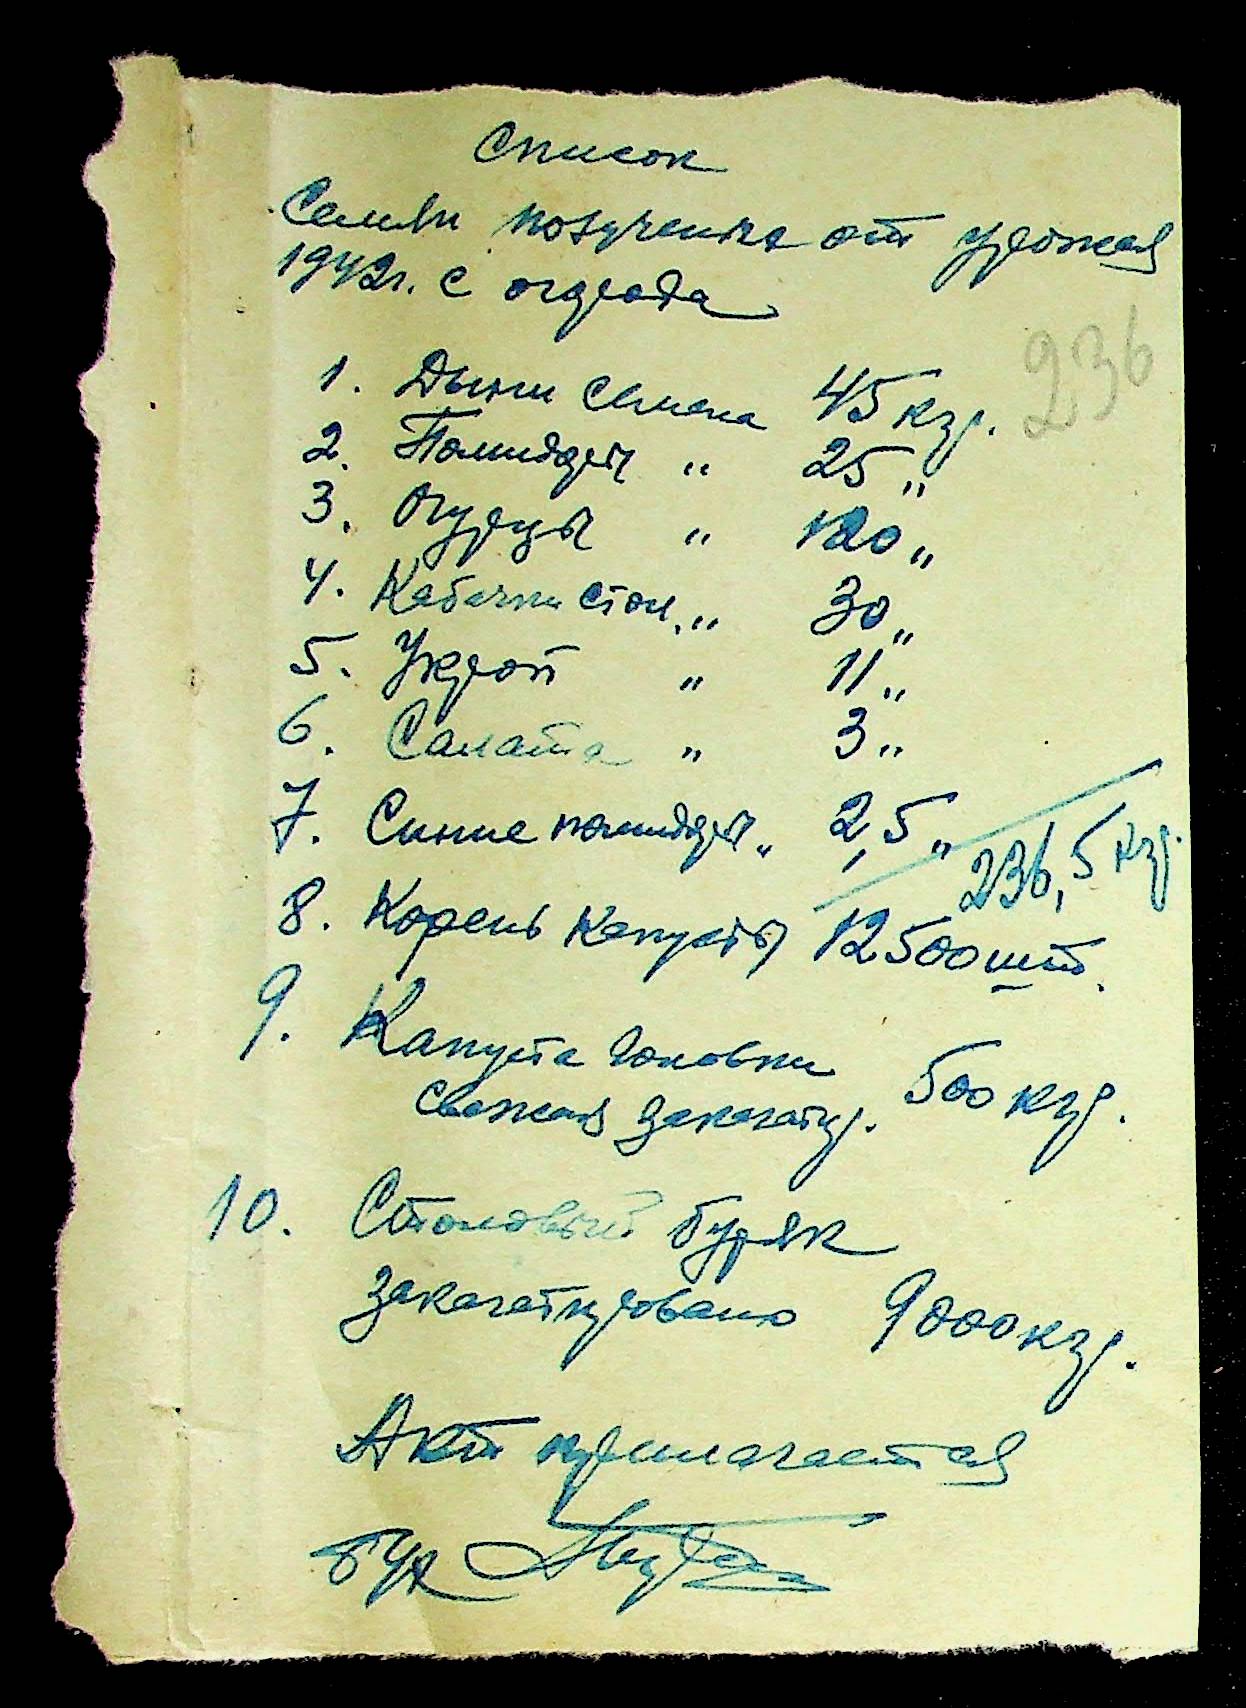 Список
Семян получених от урожая
1942г. с огорода
236
1. Дыни семена 45 кгр.
2. Помидоры " 25 "
3. Огурцы " 120 "
4. Кабачки стол. " 30 "
5. Укроп " 11 "
6. Салата " 3 "
7. Синие помидоры " 2,5 "
236,5 кгр.
8. Корень капусты 12500 шт.
9. Капуста головки
свежая закагатир. 500 кгр.
10. Столовый буряк
закагатировано 9000 кгр.
Акт прилагается
бух